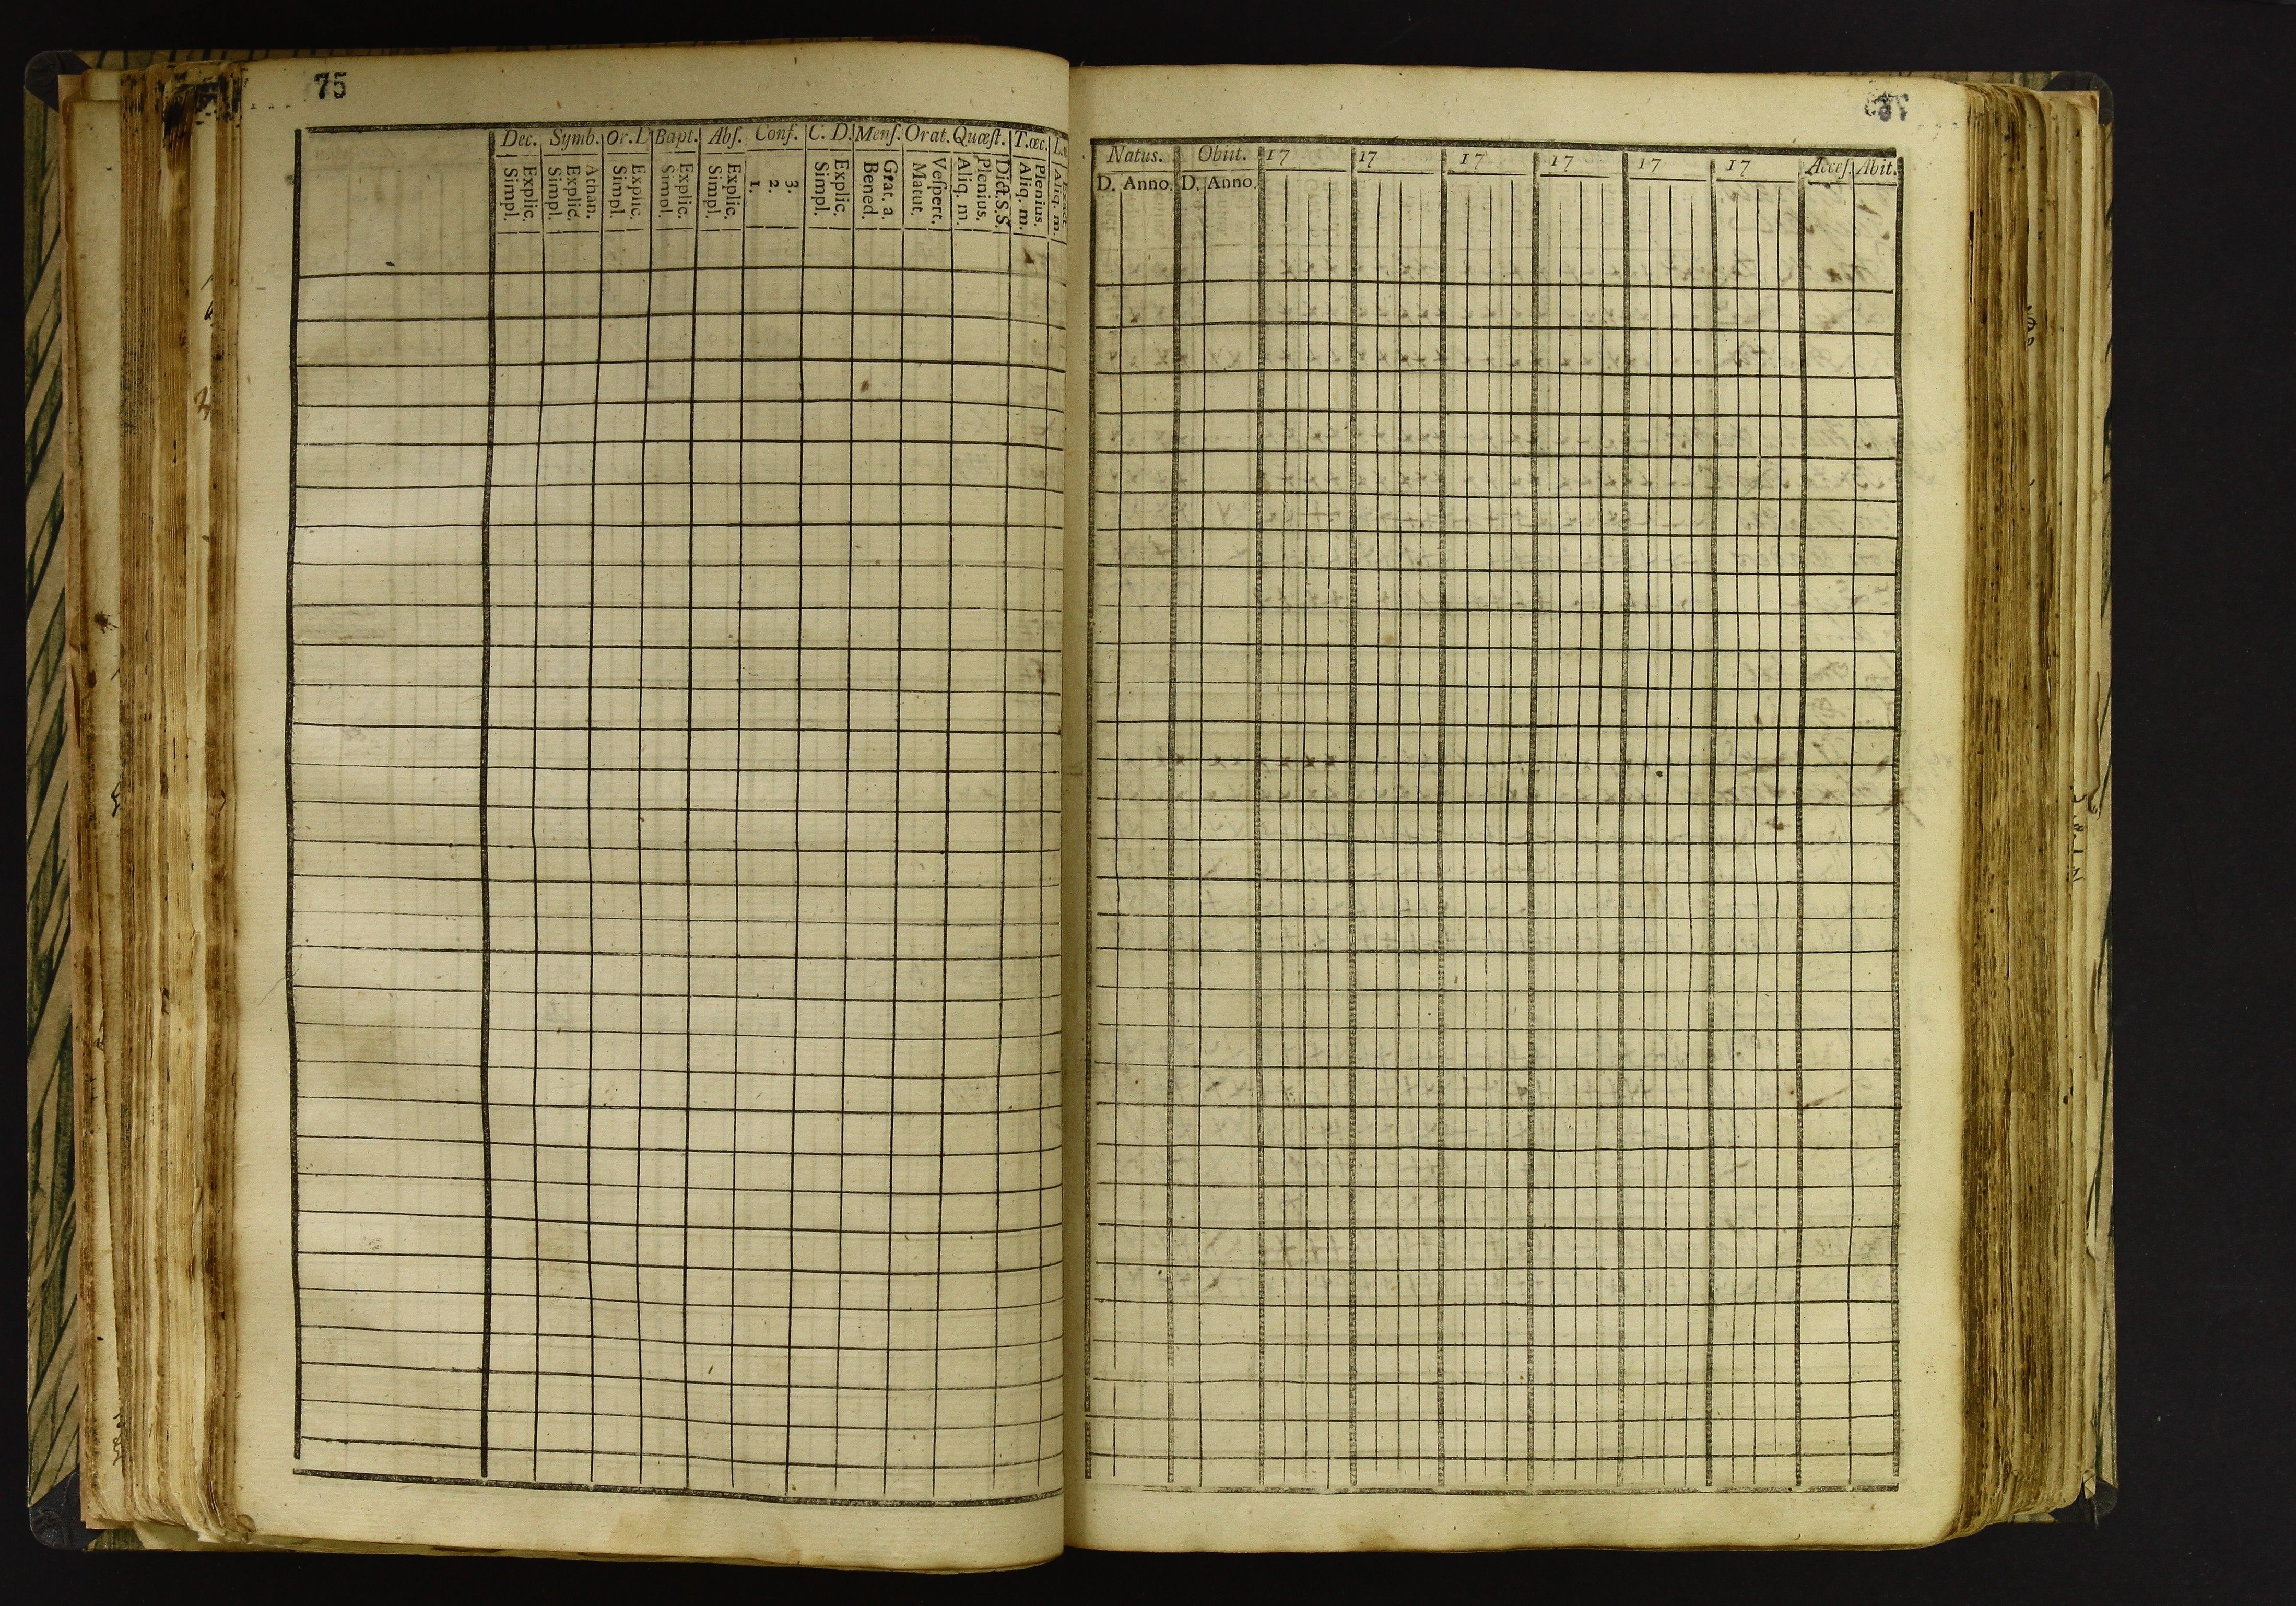 75
Dec. Symb. Or. L Bapt. Abſ. Conf. C. D. Menſ. Orat. Quæſt. T.œc.
Simpl. Explic. Simpl. Explic. Athan. Simpl. Explic. Simpl. Explic. Simpl. Explic. 1. 2. 3. Simpl. Explic. Bened. Grat. a. Matut. Veſpert. Aliq. m. Plenius. Dict.S.S. Aliq. m. Plenius. Aliq. m.
Natus. Obiit. 17 17 17 17 17 17 Acceſ. Abit.
D. Anno. D. Anno.